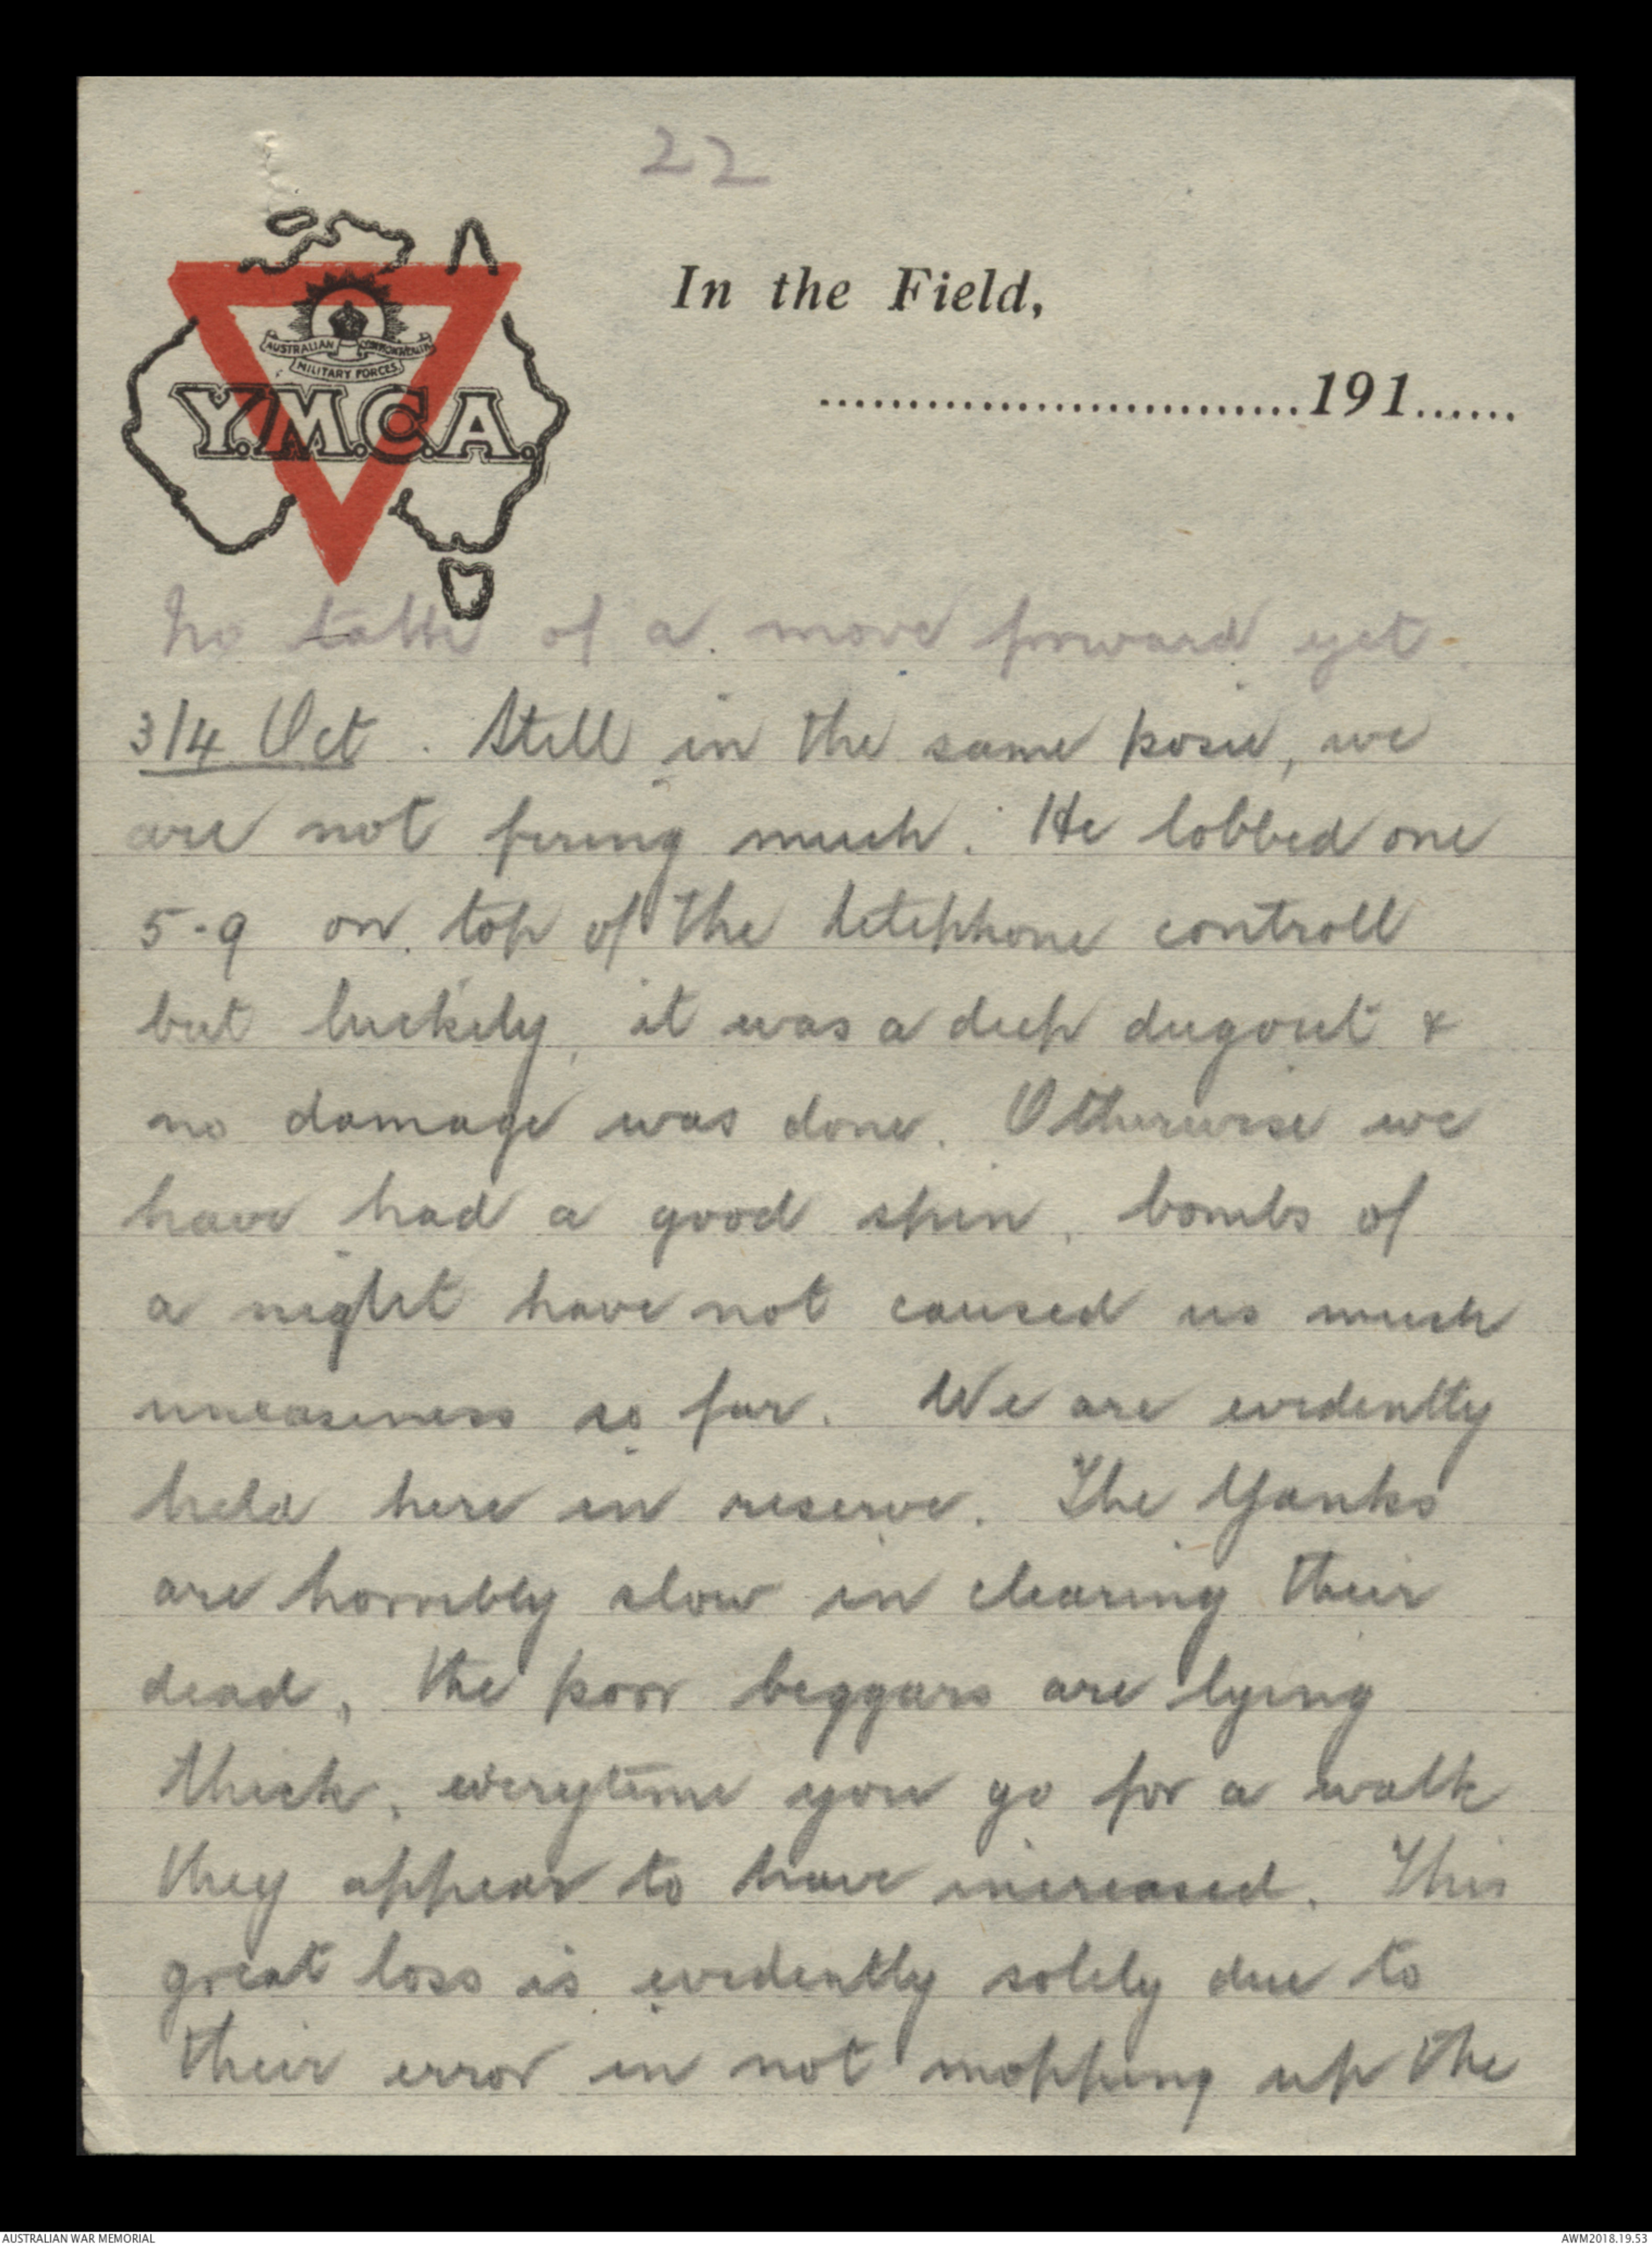 22
In the Field,
AUSTRALIAN COMMONWEALTH
MILITARY FORCES
Y.M.C.A.
.............................191......
No talk of a move forward yet.
3/4 Oct. Still in the same posie, we
are not firing much. He lobbed one
5.9 on top of the telephone controll
but luckily, it was a deep dugout &
no damage was done. Otherwise we
have had a good spin, bombs of
a night have not caused us much
uneasiness so far. We are evidently
held here in reserve. The Yanks
are horribly slow in clearing their
dead, the poor beggars are lying
thick, everytime you go for a walk
they appear to have increased. This
great loss is evidently solely due to
their error in not mopping up the
AUSTRALIAN WAR MEMORIAL
AWM2018.19.53